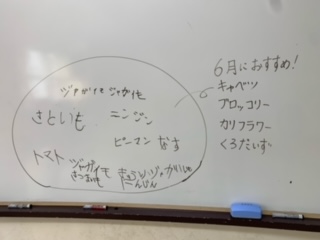 ジャガイモ ジャガイモ
さといも ニンジン
ピーマン なす
トマト ジャガイモ
さつまいも
にんじん
6月におすすめ!
キャベツ
ブロッコリー
カリフラワー
くろだいず